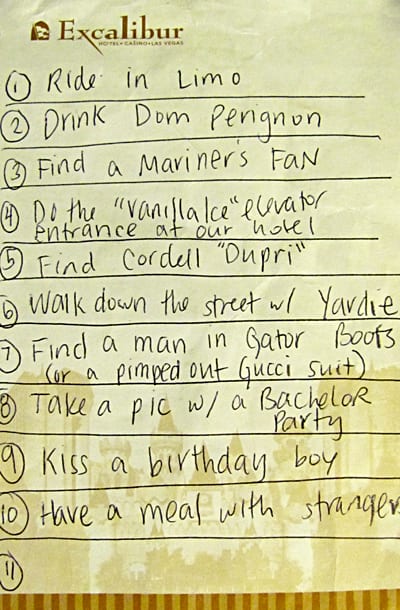 Excalibur
HOTEL • CASINO • LAS VEGAS
1 Ride in Limo
2 Drink Dom Perignon
3 Find a Mariner's FaN
4 Do the "Vanilla Ice" elevator
entrance at our hotel
5 Find Cordell "Dupri"
6 Walk down the street w/ Yardie
7 Find a man in Gator Boots
(or a pimped out Gucci suit)
8 Take a pic w/ a Bachelor
Party
9 Kiss a birthday boy
10 Have a meal with strangers
11